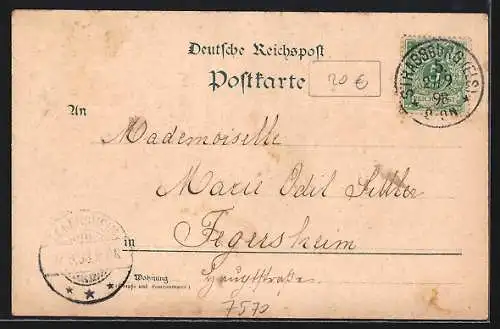 Deutsche Reichspost
Postkarte
20 €
STRASSBURG (ELS)
98
An
Mademoiselle
Marie Odil
in Fegersheim
Wohnung
(Straße und Hausnummer)
Hauptstraße.
7570